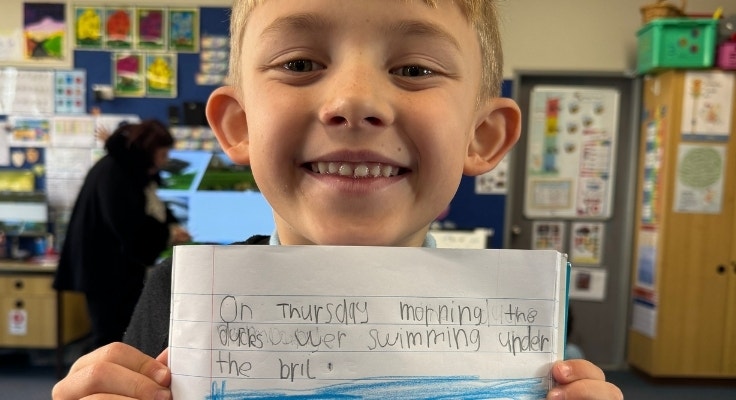 On Thursday morning the
ducks wer swimming under
the bril.